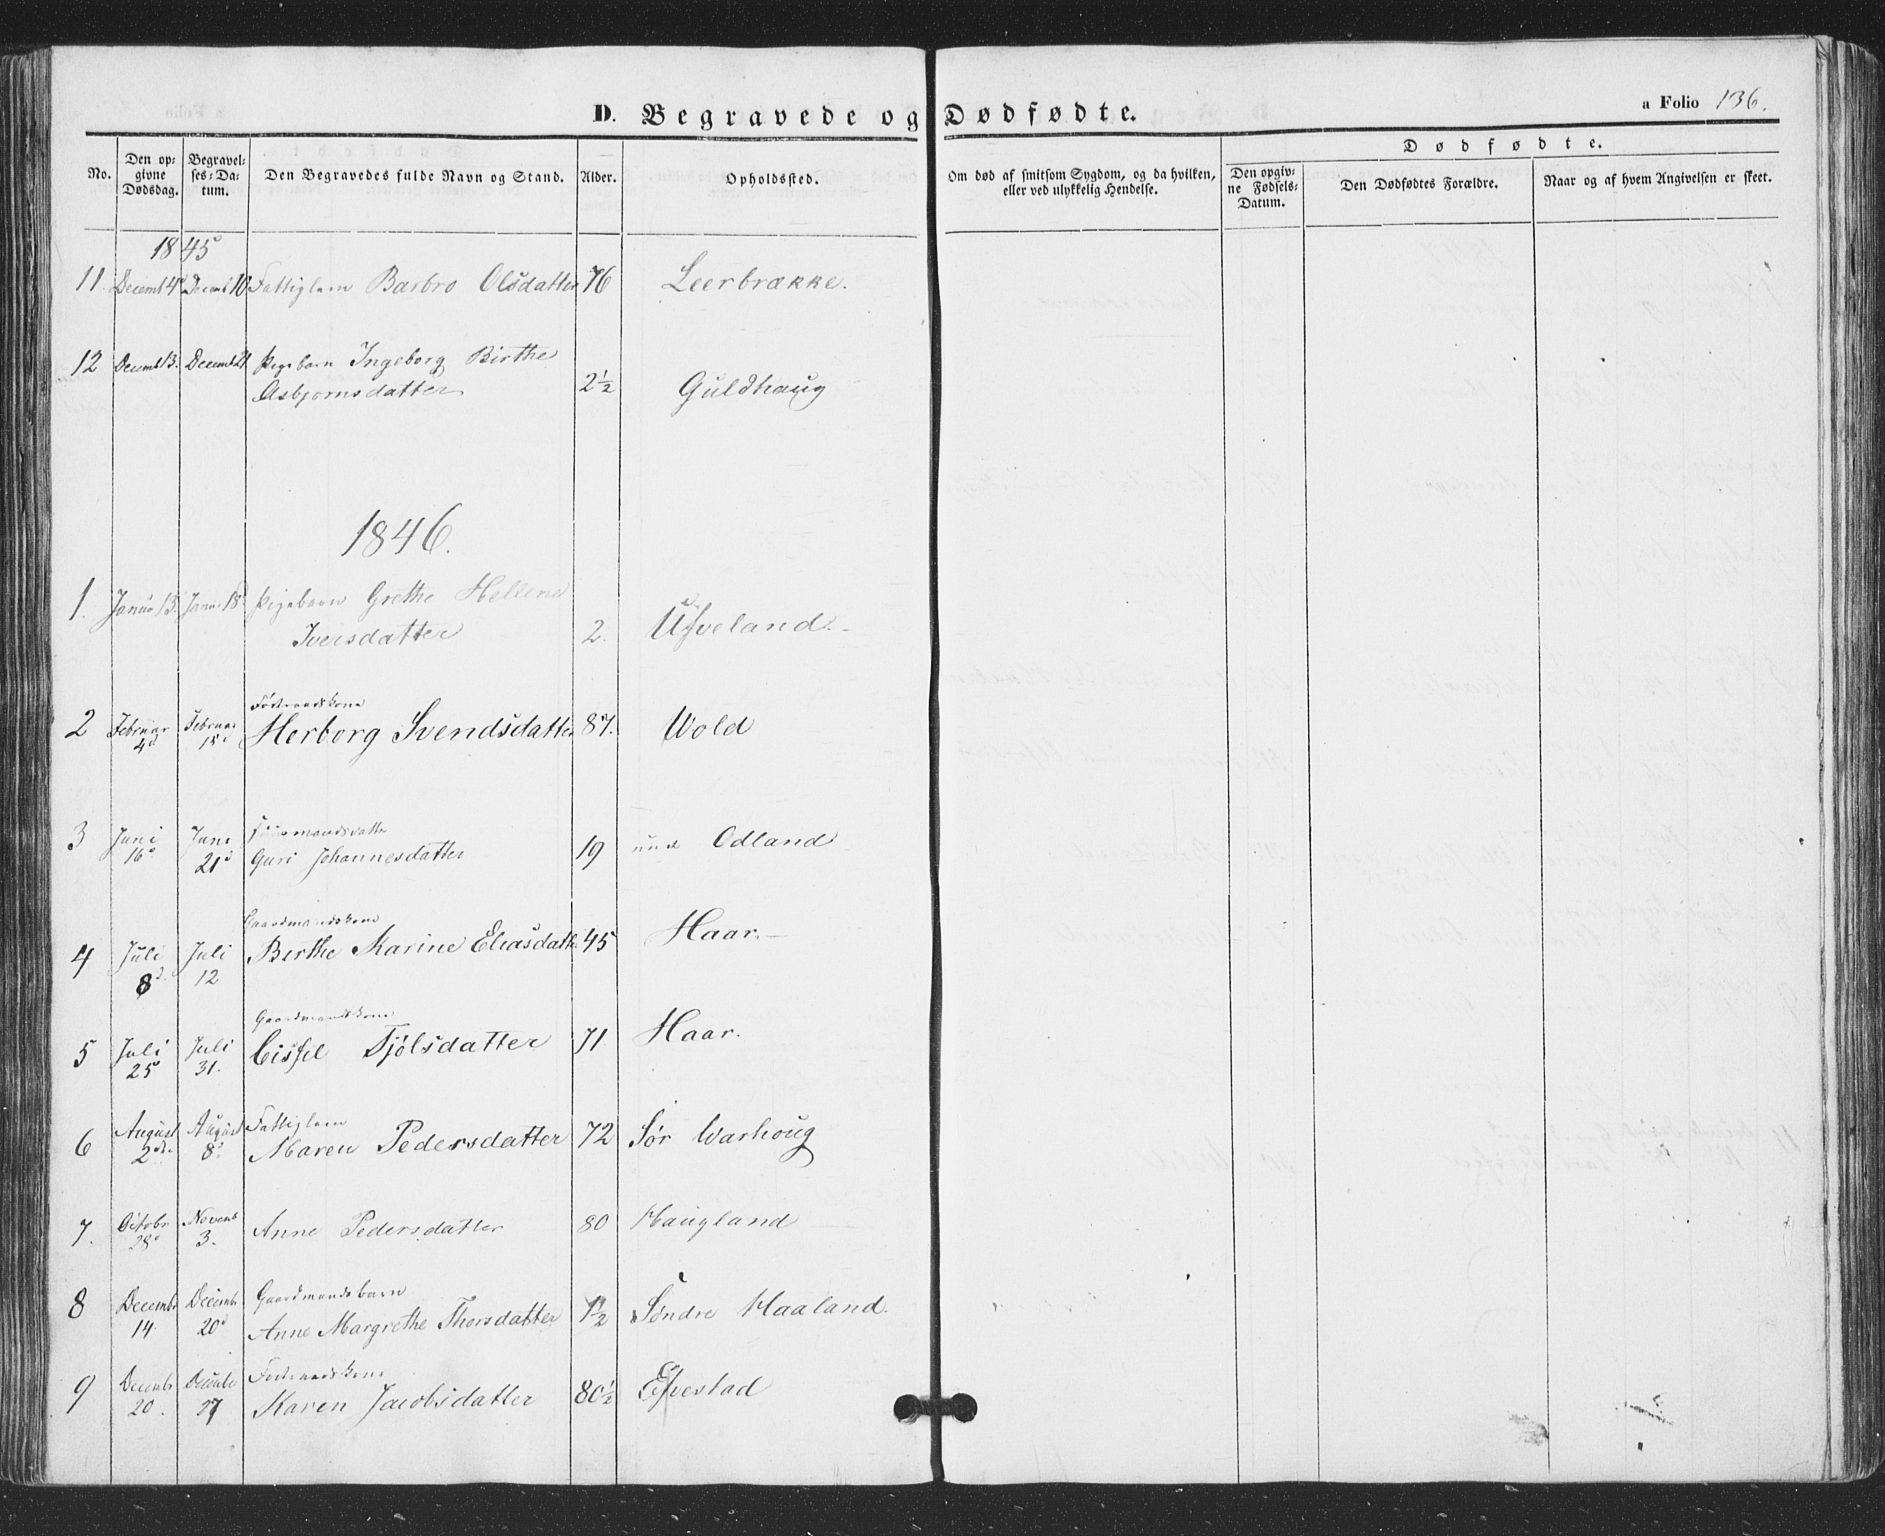 D. Begravede og Dødfødte.
a Folio 136.
No.
Den op-
givne
Dødsdag.
Begravel-
ses-Da-
tum.
Den Begravedes fulde Navn og Stand.
Alder.
Opholdssted.
Om død af smitsom Sygdom, og da hvilken,
eller ved ulykkelig Hendelse.
Dødfødte.
Den opgiv-
ne Fødsels-
Datum.
Den Dødfødtes Forældre.
Naar og af hvem Angivelsen er skeet.
1845
11 Decemb 4 Decemb 10 Fattiglem Barbro Olsdatter 76 Leerbrække.
12 Decemb 13. Decemb 21 Pigebarn Ingeborg Birthe
Asbjornsdatter 2½ Guldhaug
1846.
1. Januar 13. Janr 18 Pigebarn Grethe Hellene
Iversdatter 2. Ufveland.
Føderaadskone
2 Februar Februar Herborg Svendsdatter 87. Wold
4d 15d
3 Juni Juni
16d 21d Guri Johannesdatter 19 Odland
Gaardmandskone
4 Juli Juli Berthe Karine Eliasdatt. 45 Haar.
8d. 12
Gaardmandskone
5 Juli Juli Cissil Tjølsdatter 71 Haar.
25 31.
6 August August Fattiglem
2den 8d Maren Pedersdatter 72 Sør Warhoug
7. Octobr Novemb Anne Pedersdatter 80 Haugland
28d 3.
8 Decemb Decemb Gaardmandsbarn
14. 20d Anne Margrethe Thorsdatter 1½ Søndre Haaland.
9 Decemb Decemb Føderaadskone
20. 27 Karen Jacobsdatter 80½ Efvestad